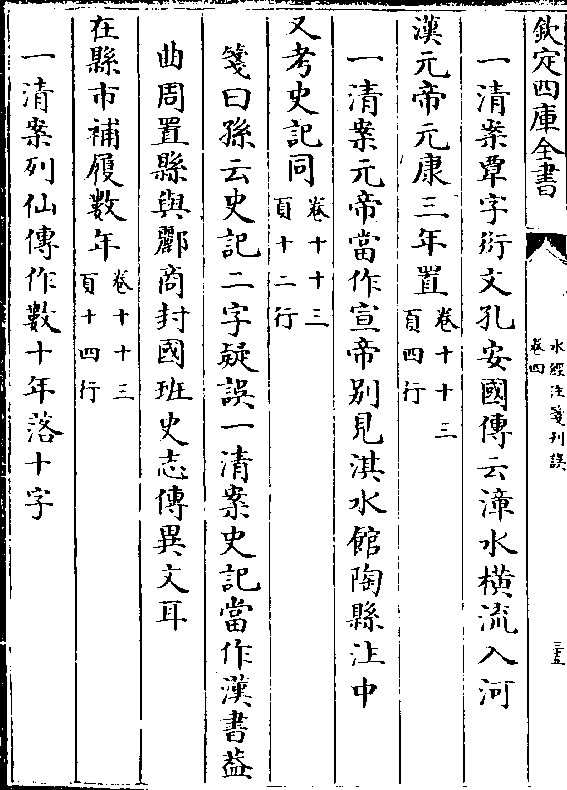 欽定四庫全書
水經注箋刊誤
卷四
三五
一清案覃字衍文孔安國傳云漳水橫流入河
漢元帝元康三年置卷十十三
頁四行
一清案元帝當作宣帝別見淇水館陶縣注中
又考史記同卷十十三
頁十二行
箋曰孫云史記二字疑誤一清案史記當作漢書蓋
曲周置縣與酈商封國班史志傳異文耳
在縣市補履數年卷十十三
頁十四行
一清案列仙傳作數十年落十字